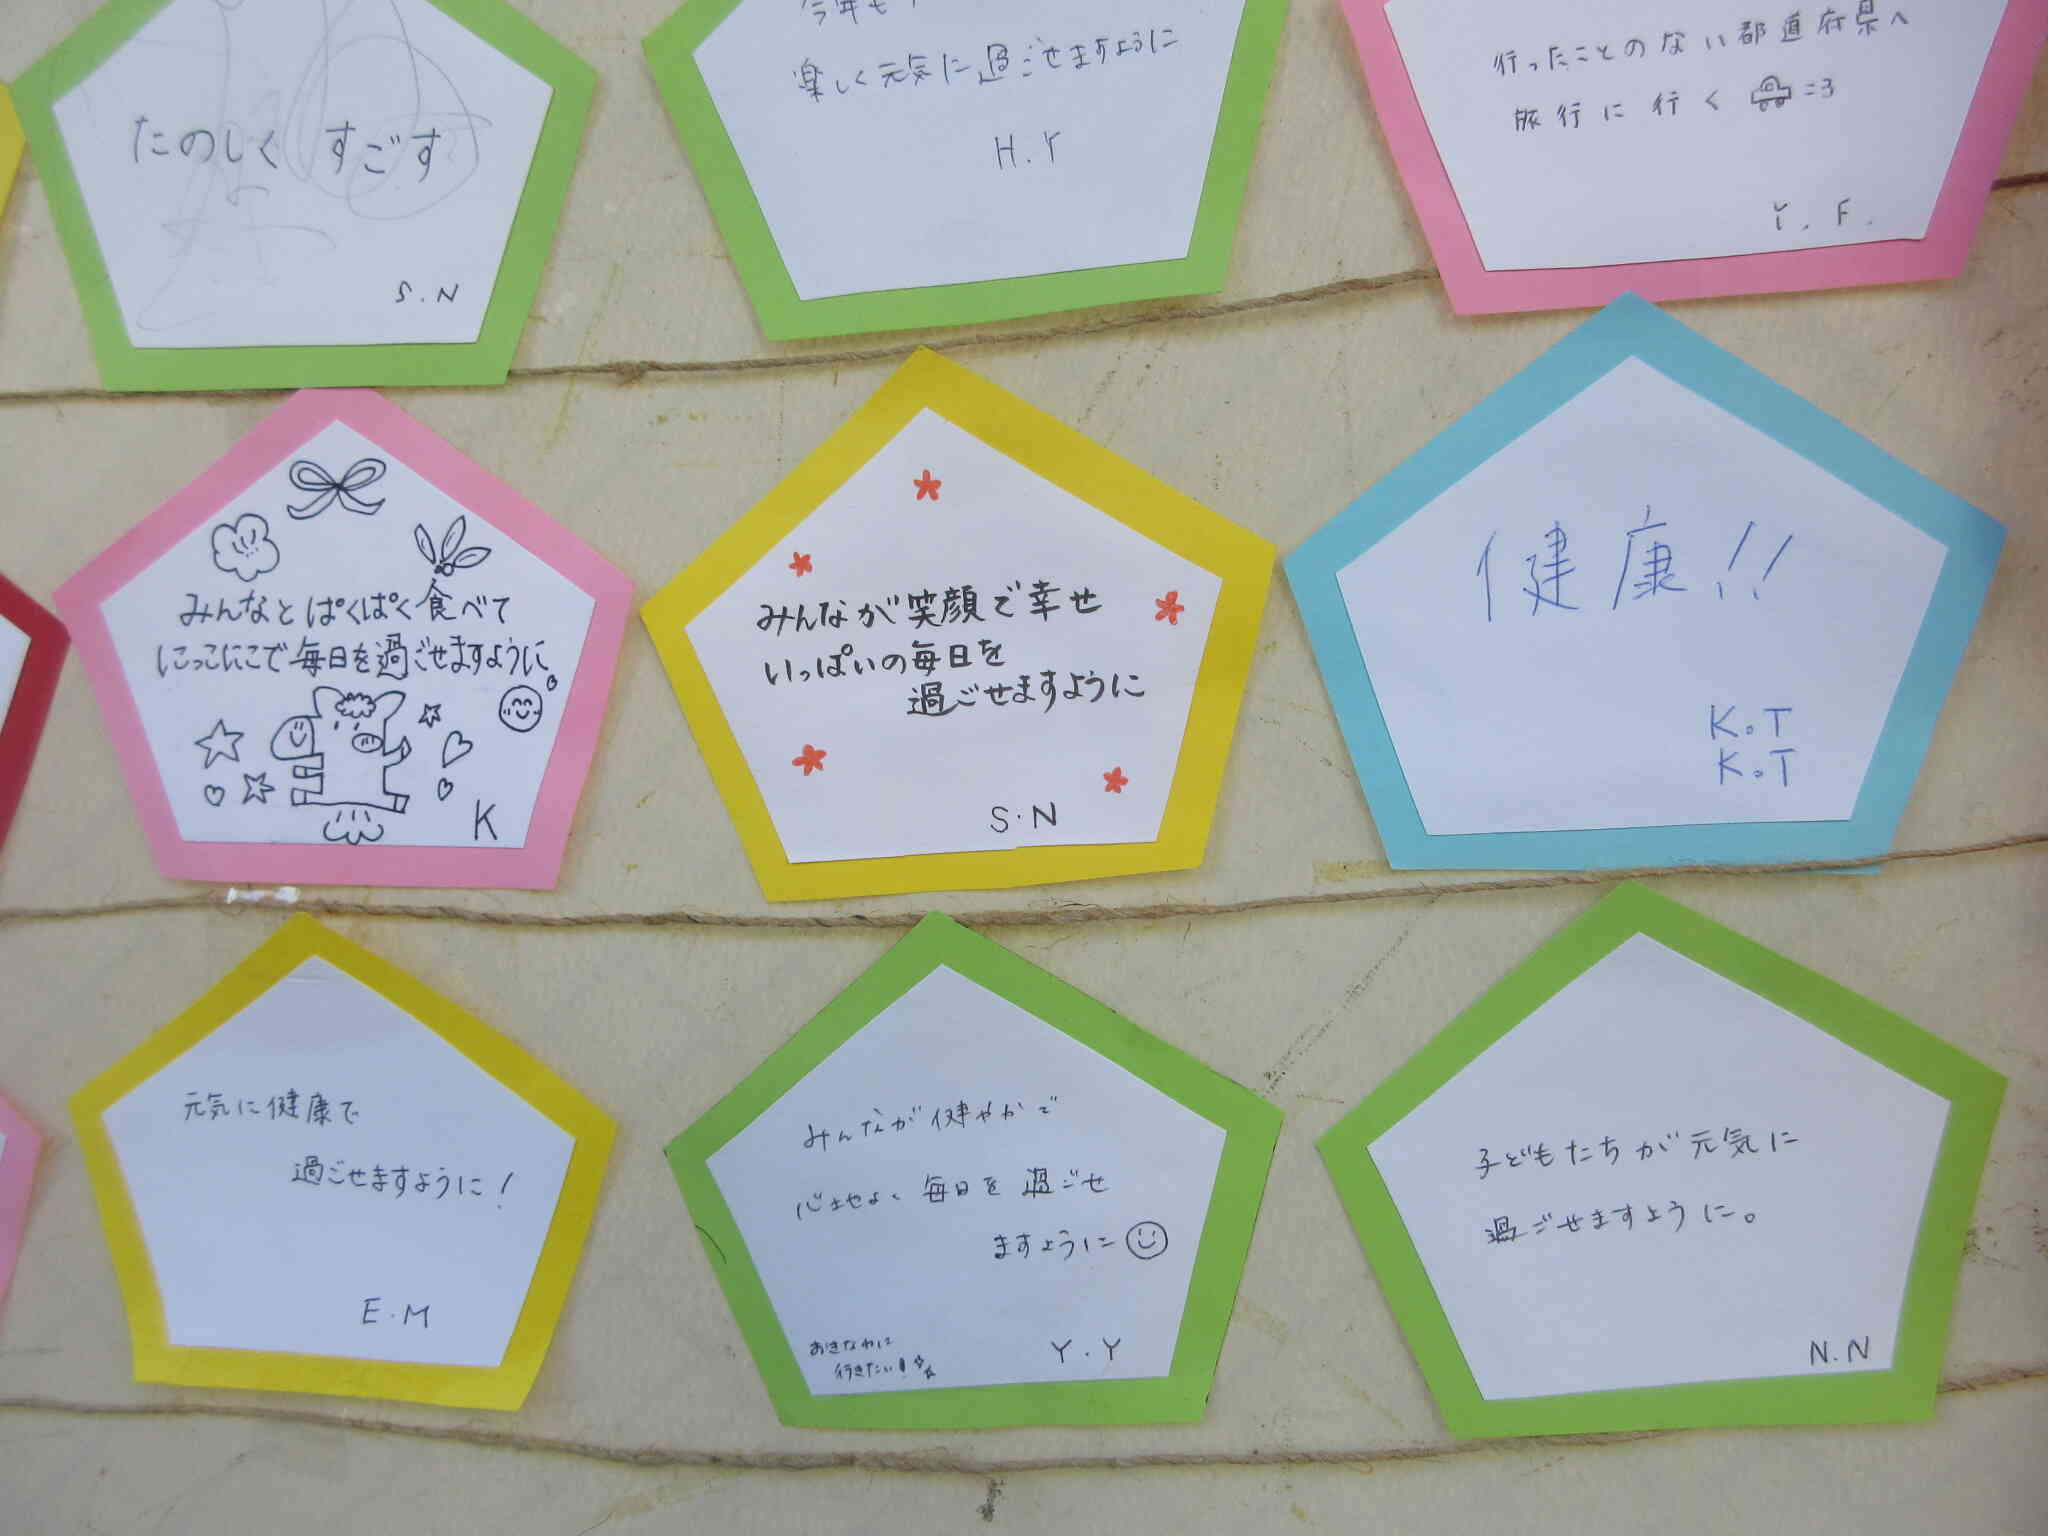 たのしく すごす
S.N
今年も
楽しく元気に過ごせますように
H.Y
行ったことのない都道府県へ
旅行に行く
Y.F.
みんなとぱくぱく食べて
にっこにこで毎日を過ごせますように
K
みんなが笑顔で幸せ
いっぱいの毎日を
過ごせますように
S.N
健康!!
K.T
K.T
元気に健康で
過ごせますように!
E.M
みんなが健やかで
心地よく毎日を過ごせ
ますように
おきなわに
行きたい!
Y.Y
子どもたちが元気に
過ごせますように。
N.N